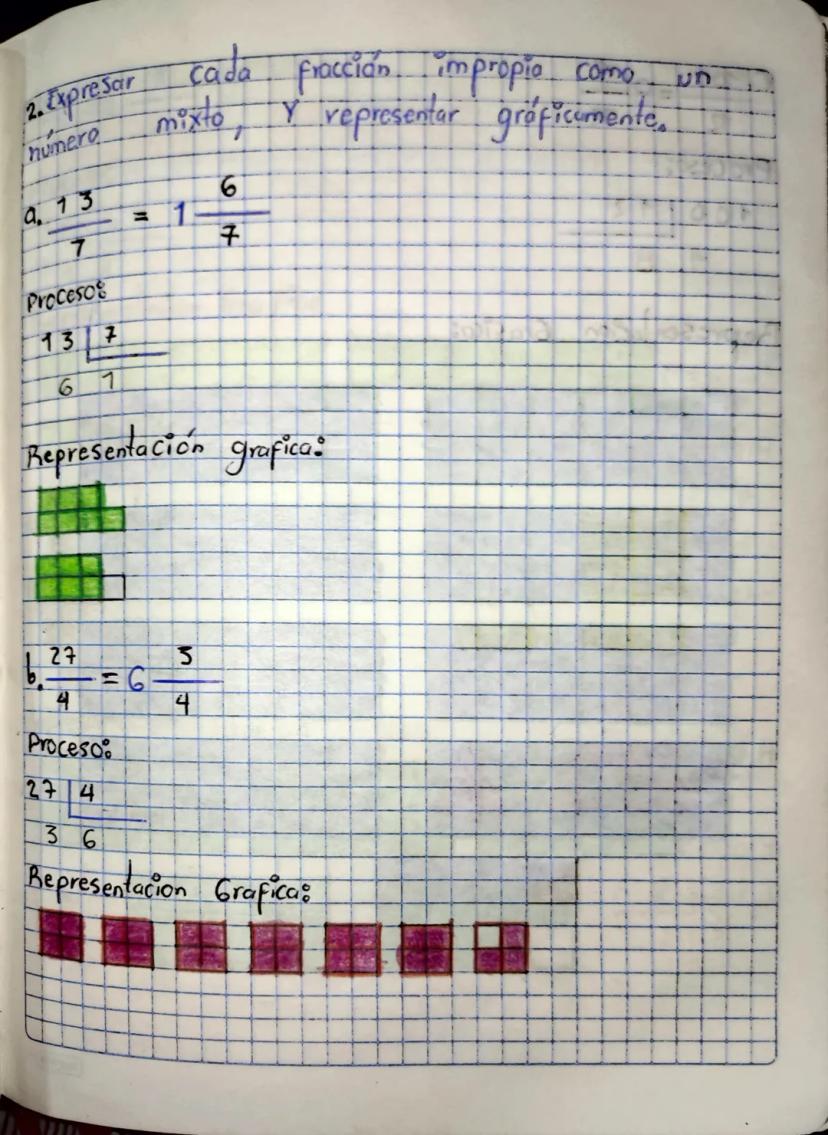 2. Expresar cada fracción impropia como un
número mixto, Y representar gráficamente.
a. 13/7 = 1 6/7
Proceso:
13 7
6 1
Representación grafica:
b. 27/4 = 6 3/4
Proceso:
27 4
3 6
Representacion Grafica: